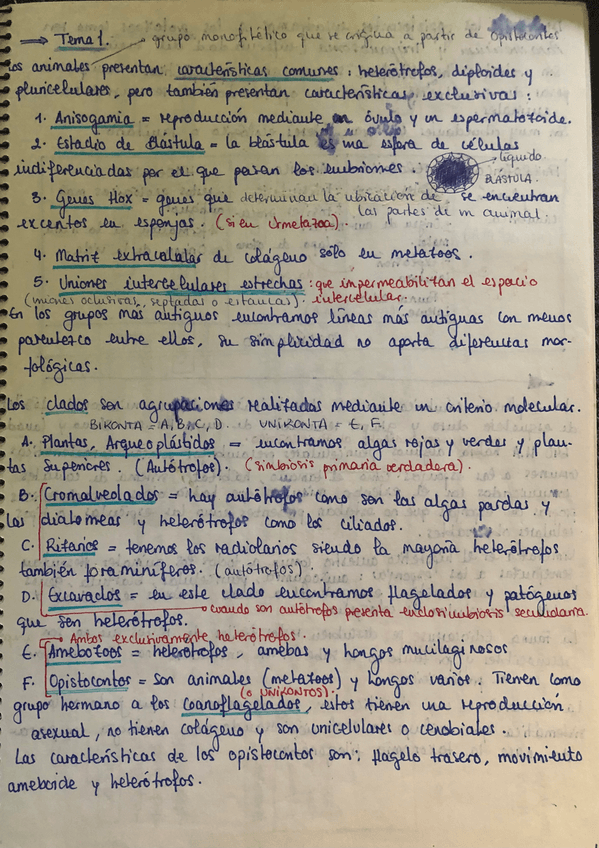 ⇒ Tema 1. grupo monofilético que se origina a partir de Opistocontos
Los animales presentan características comunes: heterótrofos, diploides y
pluricelulares, pero también presentan características exclusivas:
1. Anisogamia = reproducción mediante un óvulo y un espermatozoide.
2. Estadio de Blástula = la blástula es una esfera de células
indiferenciadas por el que pasan los embriones.
líquido
BLÁSTULA.
3. Genes Hox = genes que determinan la ubicación de se encuentran
las partes de un animal
excentos en esponjas. (si en Urmetazoa).
4. Matriz extracelular de colágeno sólo en metazoos.
5. Uniones intercelulares estrechas: que impermeabilizan el espacio
(uniones oclusivas, septadas o estancas). intercelular.
En los grupos más antiguos encontramos líneas más antiguas con menos
parentezco entre ellos, su simplicidad no aporta diferencias mor-
fológicas.
Los clados son agrupaciones realizadas mediante un criterio molecular.
BIKONTA = A, B, C, D. UNIKONTA = E, F.
A. Plantas, Arqueoplástidos = encontramos algas rojas y verdes y plan-
tas superiores. (Autótrofos). (simbiosis primaria verdadera).
B. Cromalveolados = hay autótrofos como son las algas pardas y
las diatomeas y heterótrofos como los ciliados.
C. Rizarios = tenemos los radiolarios siendo la mayoría heterótrofos
también foraminíferos. (autótrofos).
D. Excavados = en este clado encontramos flagelados y patógenos
cuando son autótrofos presenta endosimbiosis secundaria.
que son heterótrofos.
Ambos exclusivamente heterótrofos.
E. Amebozoos = heterótrofos, amebas y hongos mucilaginosos
F. Opistocontos = son animales (metazoos) y hongos varios. Tienen como
(o UNIKONTOS).
grupo hermano a los coanoflagelados, estos tienen una reproducción
asexual, no tienen colágeno y son unicelulares o cenobiales.
Las características de los opistocontos son: flagelo trasero, movimiento
ameboide y heterótrofos.